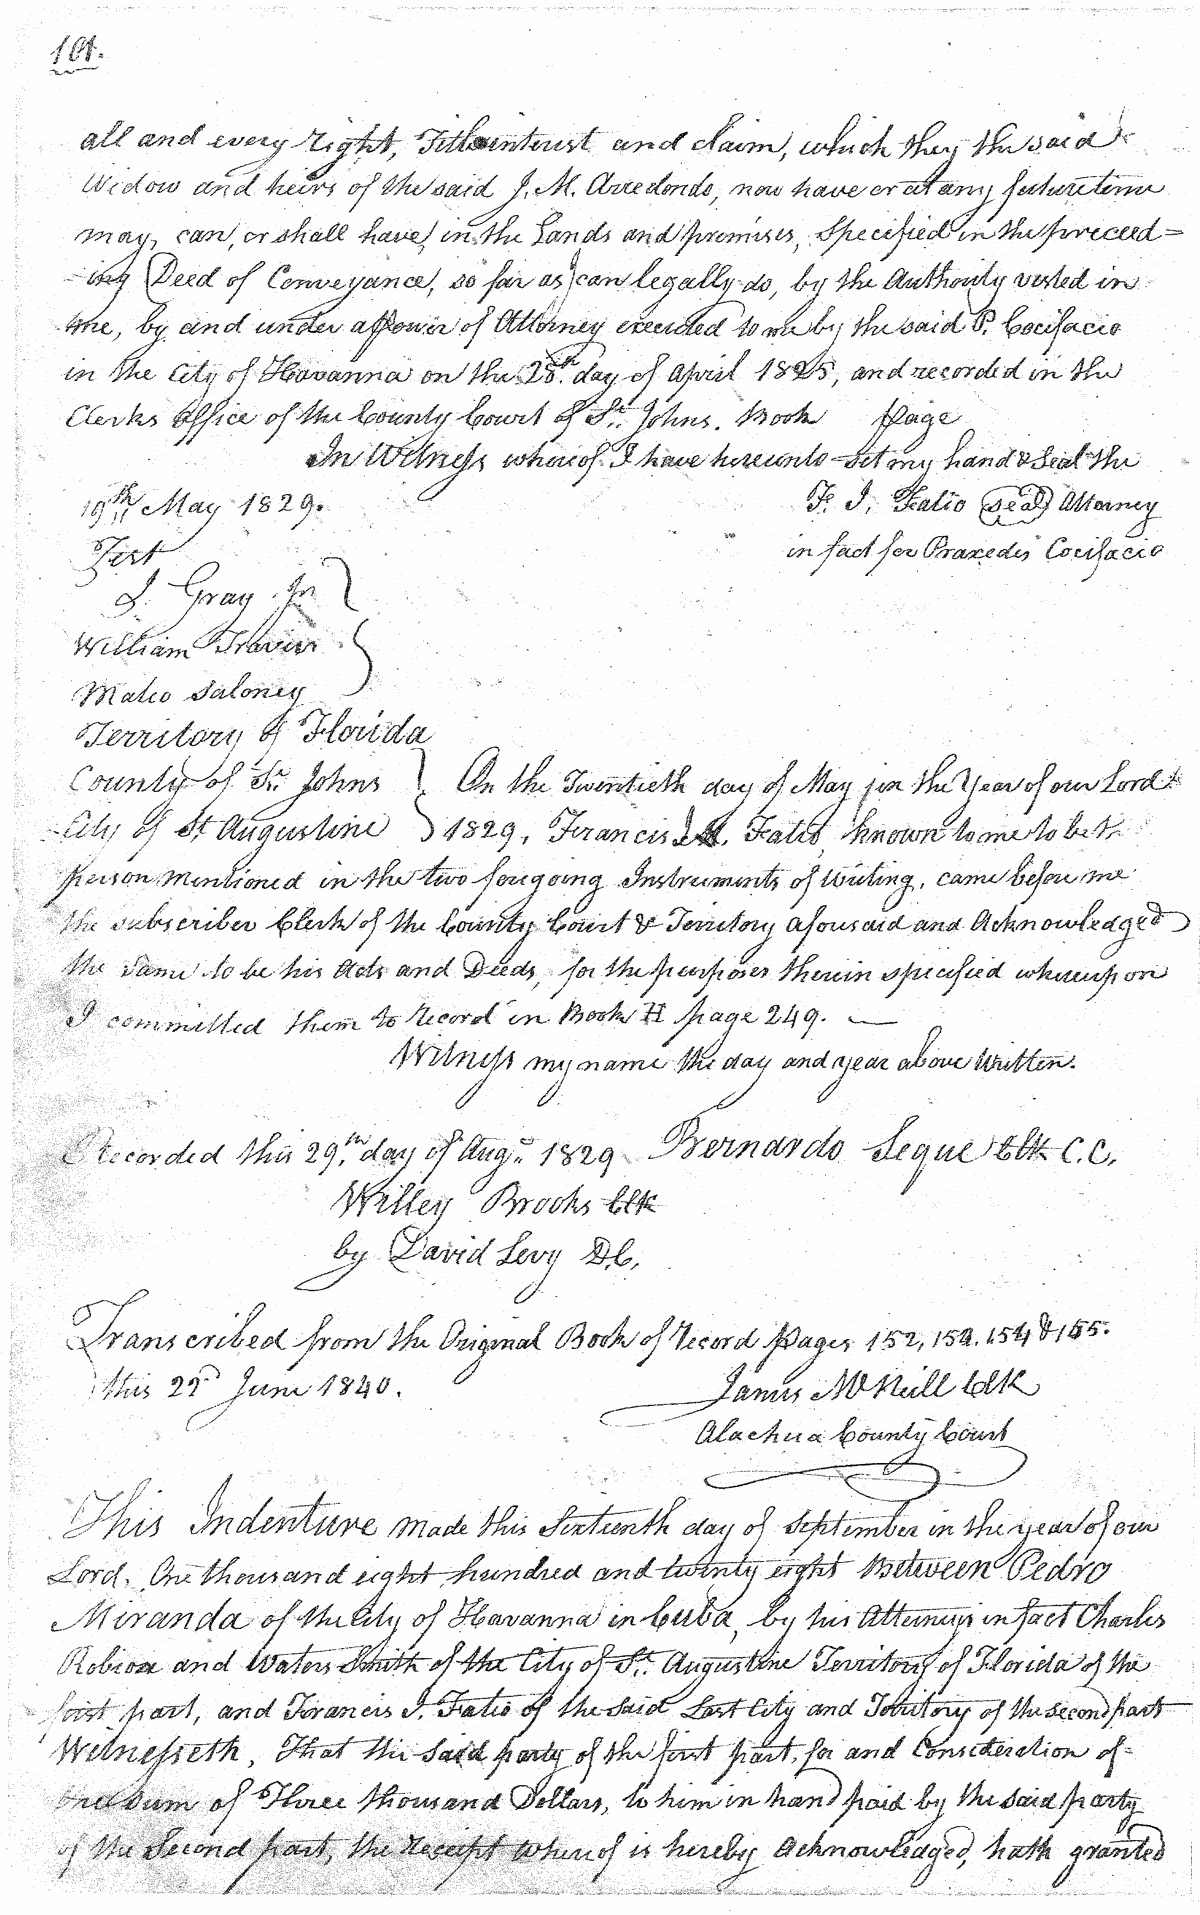 101.
all and every right, Title interest and claim, which they the said
Widow and heirs of the said J. M. Arredondo, now have or at any future time
may, can, or shall have, in the Lands and premises, Specified in the preceed=
-ing Deed of Conveyance, so far as I can legally do, by the Authority vested in
me, by and under a Power of Attorney executed to me by the said P. Cocifacio
in the City of Havanna on the 28th. day of April 1825, and recorded in the
Clerks Office of the County Court of St. Johns. Book Page
In Witness whereof I have hereunto set my hand & Seal the
19th May 1829. F. J. Fatio (seal) Attorney
Test in fact for Praxedis Cocifacio
J. Gray Jr
William Travers
Mateo Saloney
Territory of Florida
County of St. Johns } On the Twentieth day of May in the Year of our Lord
City of St Augustine } 1829, Francis J. Fatio, known to me to be the
person mentioned in the two foregoing Instruments of Writing, came before me
the subscriber Clerk of the County Court & Territory aforesaid and Acknowledged
the same to be his Acts and Deeds, for the purposes therein specified whereupon
I committed them to record in Book H page 249. —
Witness my name the day and year above Written.
Recorded this 29th. day of Augt. 1829 Bernardo Segue Clk C.C.
Willey Brooks Clk
by David Levy D.C.
Transcribed from the Original Book of record Pages 152, 153, 154 & 155.
this 22d June 1840. James McNeill Clk
Alachua County Court
This Indenture made this Sixteenth day of September in the year of our
Lord, One thousand eight hundred and twenty eight Between Pedro
Miranda of the City of Havanna in Cuba, by his Attorneys in fact Charles
Robiou and Waters Smith of the City of St. Augustine Territory of Florida of the
first part, and Francis J. Fatio of the said Last City and Territory of the second part
Witnesseth, That the said party of the first part, for and Consideration of=
the sum of Three thousand Dollars, to him in hand paid by the said party
of the Second part, the Receipt whereof is hereby Acknowledged, hath granted